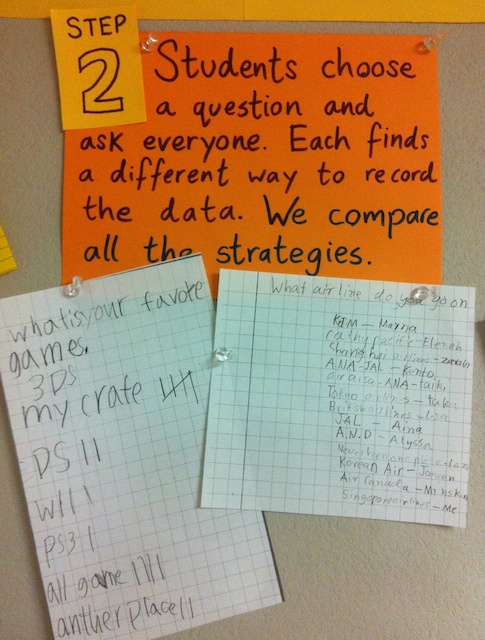 STEP
2
Students choose
a question and
ask everyone. Each finds
a different way to record
the data. We compare
all the strategies.
whatis your favote
games.
3DS
my crate
DS II
WII I
PS3 I
all game IIII
anther place II
What air line do you go on
KIM — Marna
Changhai
ANA-JAL - Kento,
ANA-taiki,
Tokyo
JAL — Aina
A.N.D — Alyssa
Korean Air —
Air Canada —
Singapore airlines — Me